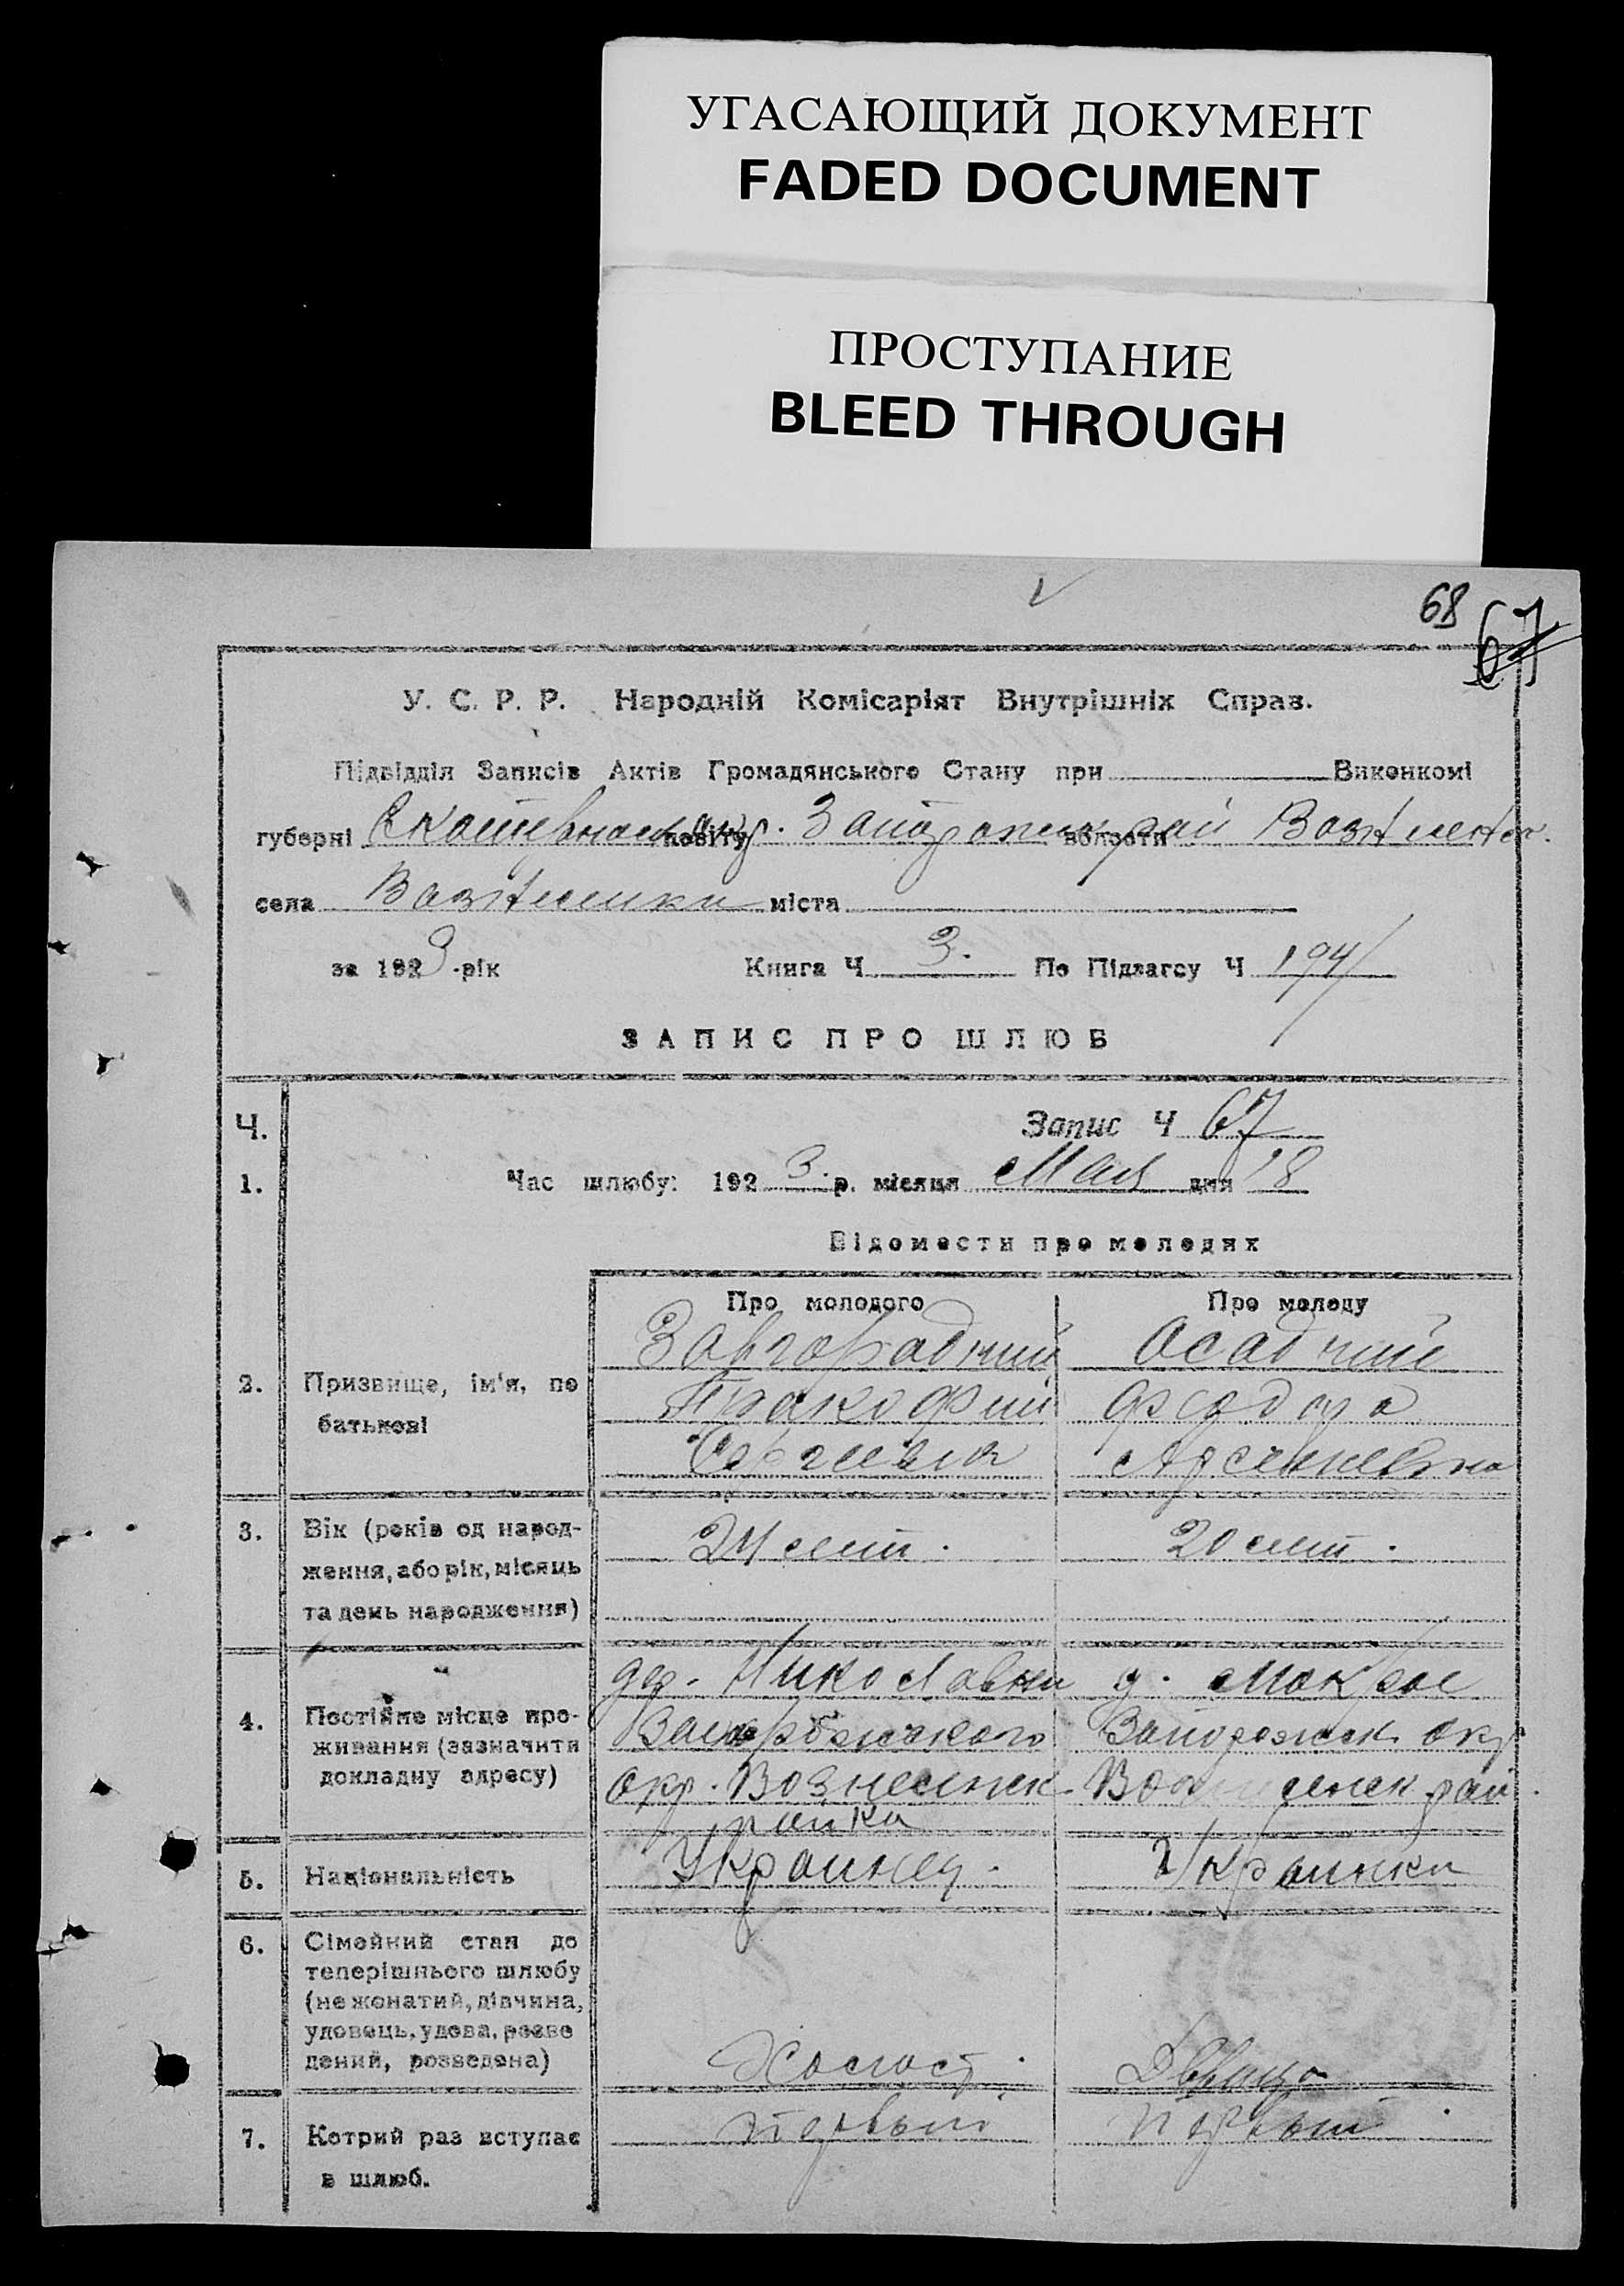 УГАСАЮЩИЙ ДОКУМЕНТ
FADED DOCUMENT
ПРОСТУПАНИЕ
BLEED THROUGH
68 67
У. С. Р. Р. Народній Комісаріят Внутрішніх Справ.
Підвідділ Записів Актів Громадянського Стану при Виконкомі
губерні повіту волости
села міста
за 1923 рік Книга Ч 3. По Підзагсу Ч 194
ЗАПИС ПРО ШЛЮБ
Ч. Запис Ч 67
1. Час шлюбу: 1923 р. місяця Мая дня 18
Відомости про молодих
Про молодого Про молоду
Завгородний Асадчий
2. Призвище, ім'я, по Пракофий Феодора
батькові Сергеевич Арсениевна
3. Вік (років од народ- 24 лет. 20 лет.
ження, або рік, місяць
та день народження)
дер. д. Мокрое
4. Постійне місце про- Запорожского Запорожск окр
живання (зазначити
докладну адресу) окр. Вознесенск. Вознесенск рай.
райка
5. Національність Украинец. Украинка
6. Сімейний стан до
теперішнього шлюбу
(не жонатий, дівчина,
удовець, удова, розве
дений, розведена) Холост. Девица
7. Котрий раз вступає первый первый
в шлюб.